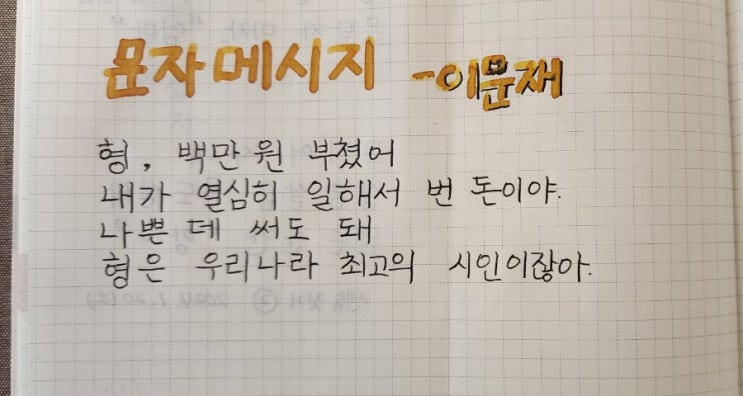 문자메시지 -이문재
형, 백만 원 부쳤어
내가 열심히 일해서 번 돈이야.
나쁜 데 써도 돼
형은 우리나라 최고의 시인이잖아.